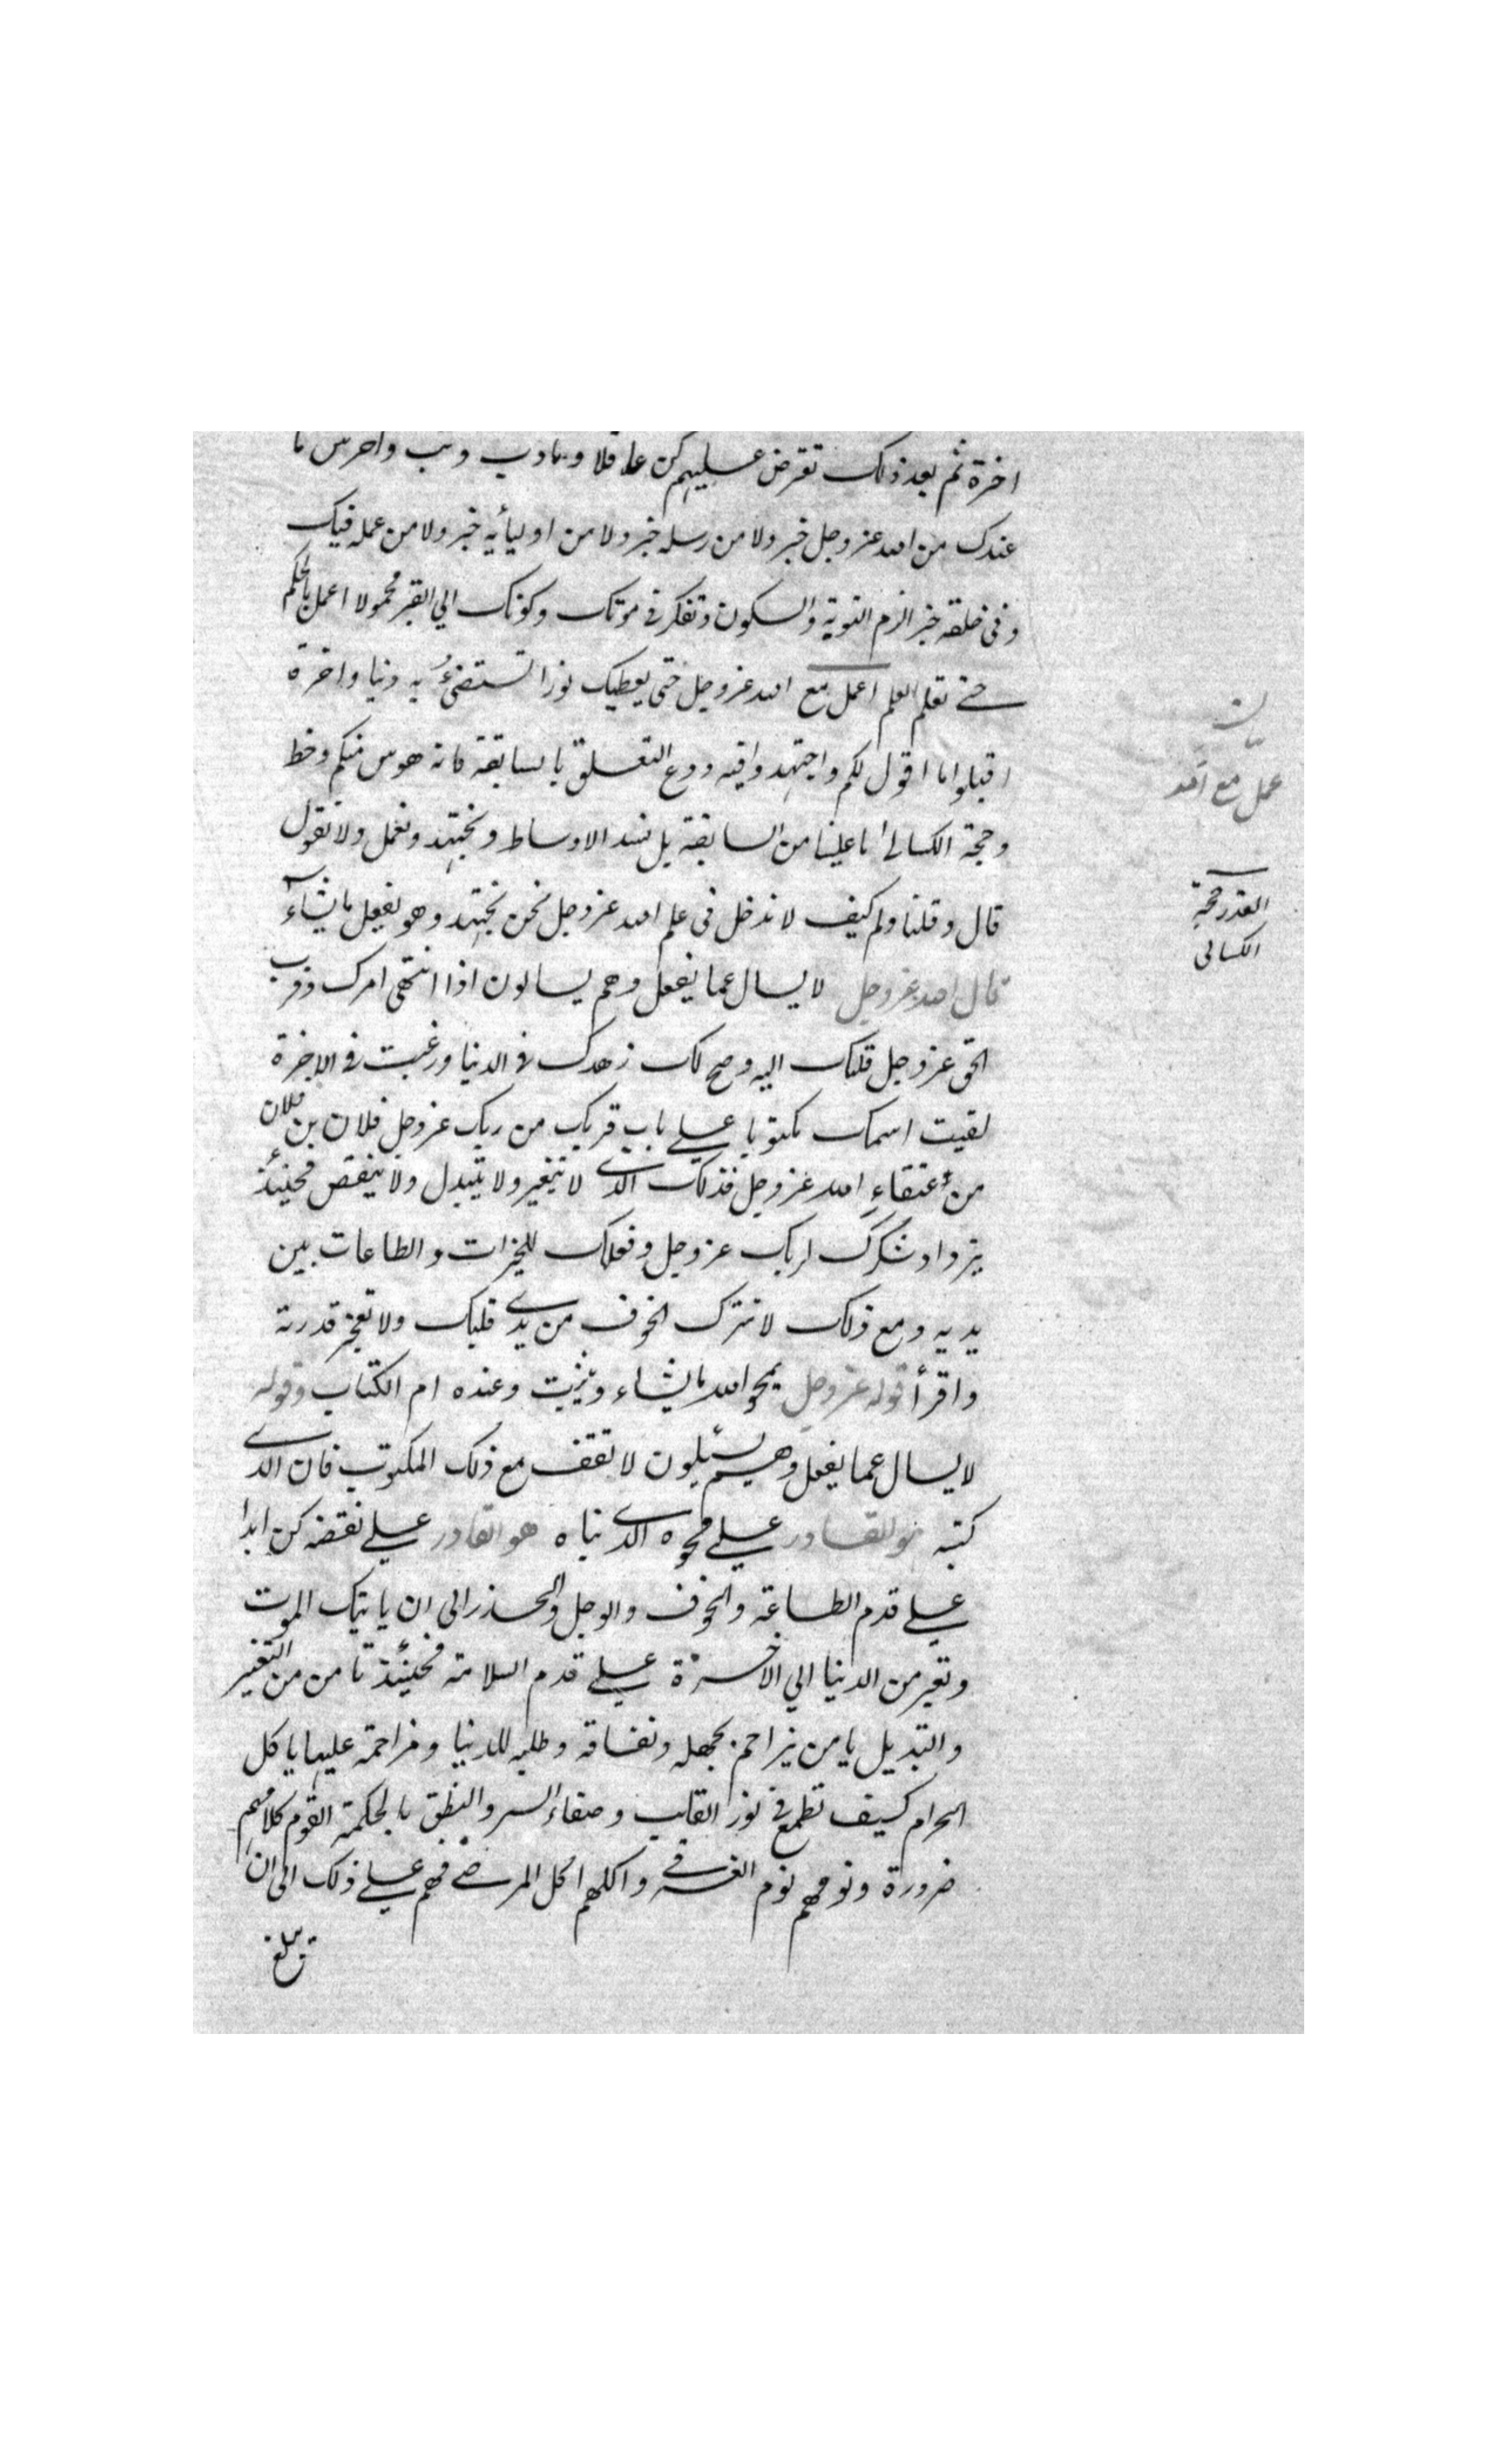 اخرة ثم بعد ذلك تعرض عليهم كن عاقلا وتادب وتب واخرس ما
عندك من الله عز وجل خبر ولا من رسله خبر ولا من اوليأيه خبر ولا من عمله فيك
وفى خلقه خبر الزم التوبة والسكون وتفكر فى موتك وكونك الي القبر محمولا اعمل بالحكم
حتى تعلم العلم اعمل مع الله عز وجل حتى يعطيك نورا تستضئ به دنيا واخرة
اقبلوا ما اقول لكم واجتهدوا فيه ودع التعلق بالسابقة فانه هوس منكم وخط
وحجة الكسالى ما علينا من السابقة بل نشد الاوساط ونجتهد ونعمل ولا نقول
قال وقلنا ولم كيف لا ندخل فى علم الله عز وجل نحن نجتهد وهو يفعل ما يشآء
قال الله عز وجل لا يسال عما يفعل وهم يسالون اذا انتهى امرك وقرب
الحق عز وجل قلبك اليه وصح لك زهدك فى الدنيا ورغبت فى الاخرة
لقيت اسمك مكتوبا على باب قربك من ربك عز وجل فلان بن فلان
من عتقاء الله عز وجل فذلك الذى لا يتغير ولا يتبدل ولا ينقص فحينئذ
يزداد شكرك لربك عز وجل وفعلك للخيرات والطاعات بين
يديه ومع ذلك لا تترك الخوف من يدى قلبك ولا تعجز قدرته
واقرأ قوله عز وجل يمحو الله ما يشاء ويثبت وعنده ام الكتاب وقوله
لا يسال عما يفعل وهم يسئلون لا تقف مع ذلك المكتوب فان الذى
كتبه هو القادر على محوه الذى بناه هو القادر على نقضه كن ابدا
على قدم الطاعة والخوف والوجل والحذر الى ان ياتيك الموت
وتعبر من الدنيا الي الاخرة على قدم السلامة فحينئذ تامن من التغير
والتبديل يا من يزاحم بجهله ونفاقه وطلبه للدنيا ومزاحمة عليها ياكل
الحرام كيف تطمع فى نور القلب وصفاء السر والنطق بالحكمة القوم كلامهم
ضرورة ونومهم نوم الغرقى واكلهم اكل المرضى فهم على ذلك الى ان
تبلغ
بيان
عمل مع الله
القدر حجة
الكسالى